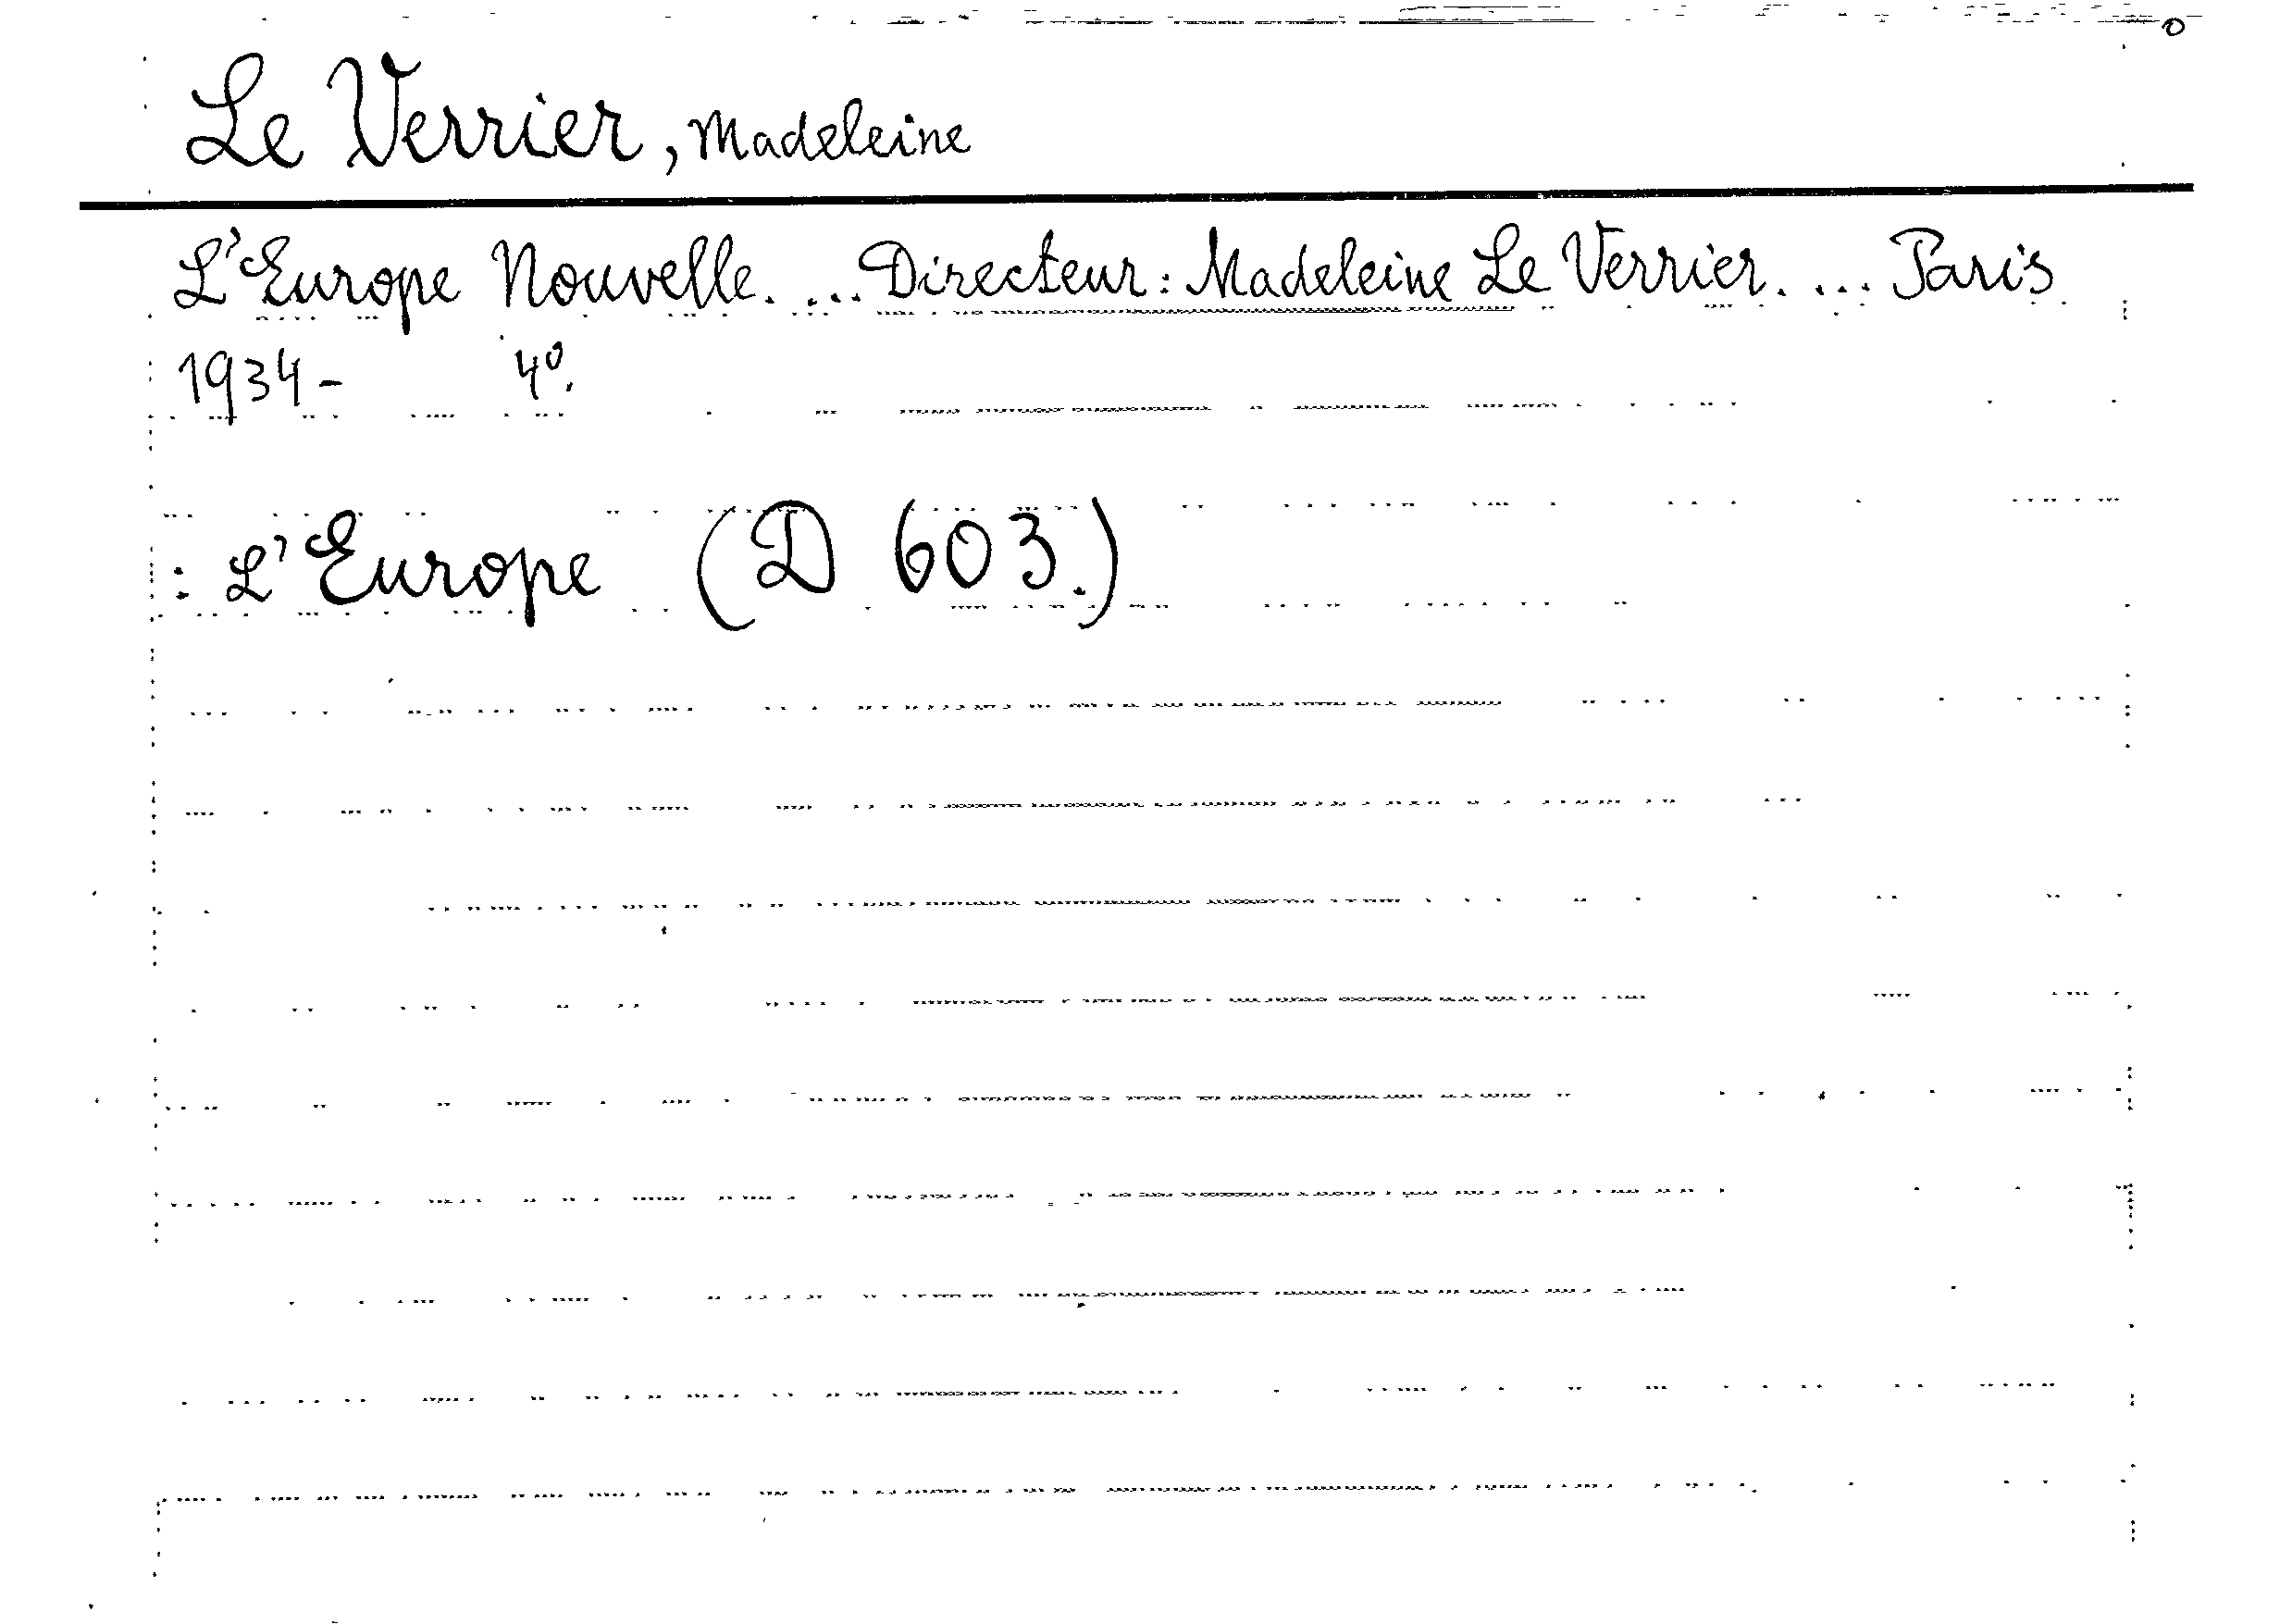 Le Verrier, Madeleine
L'Europe Nouvelle. ... Directeur: Madeleine Le Verrier. ... Paris
1934- 4º.
: L'Europe (D 603.)